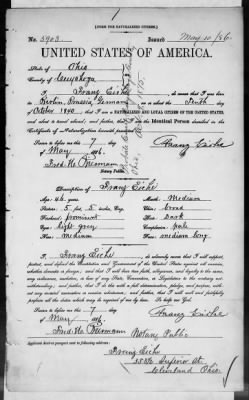 [FORM FOR NATURALIZED CITIZEN.]
No. 5903 Issued May 10/86
UNITED STATES OF AMERICA.
State of Ohio
County of Cuyahoga
I, Franz Eiche, do swear that I was born
Berlin, Prussia, Germany on or about the Tenth day
October 1840, that I am a NATURALIZED AND LOYAL CITIZEN OF THE UNITED STATES,
and about to travel abroad; and further, that I am the Identical Person described in the
Certificate of Naturalization herewith presented.
Sworn to before me this 7 day
of May 1886.
Fred. H.
Notary Public.
Description of Franz Eiche
Age: 46 years. Mouth: Medium
Stature: 5 ft. 5 inches, Eng. Chin:
Forehead: prominent Hair: Dark
Eyes: light grey Complexion: pale
Nose: medium Face: medium long
I, Franz Eiche, do solemnly swear that I will support,
protect, and defend the Constitution and Government of the United States against all enemies,
whether domestic or foreign; and that I will bear true faith, allegiance, and loyalty to the same,
any ordinance, resolution, or law of any State, Convention, or Legislature to the contrary not-
withstanding; and further, that I do this with a full determination, pledge, and purpose, with-
out any mental reservation or evasion whatsoever; and further, that I will well and faithfully
perform all the duties which may be required of me by law. So help me God.
Sworn to before me this 7 day
of May 1886.
Fred. H. Notary Public
Applicant desires passport sent to following address:
Franz Eiche
Superior St.
Cleveland Ohio.